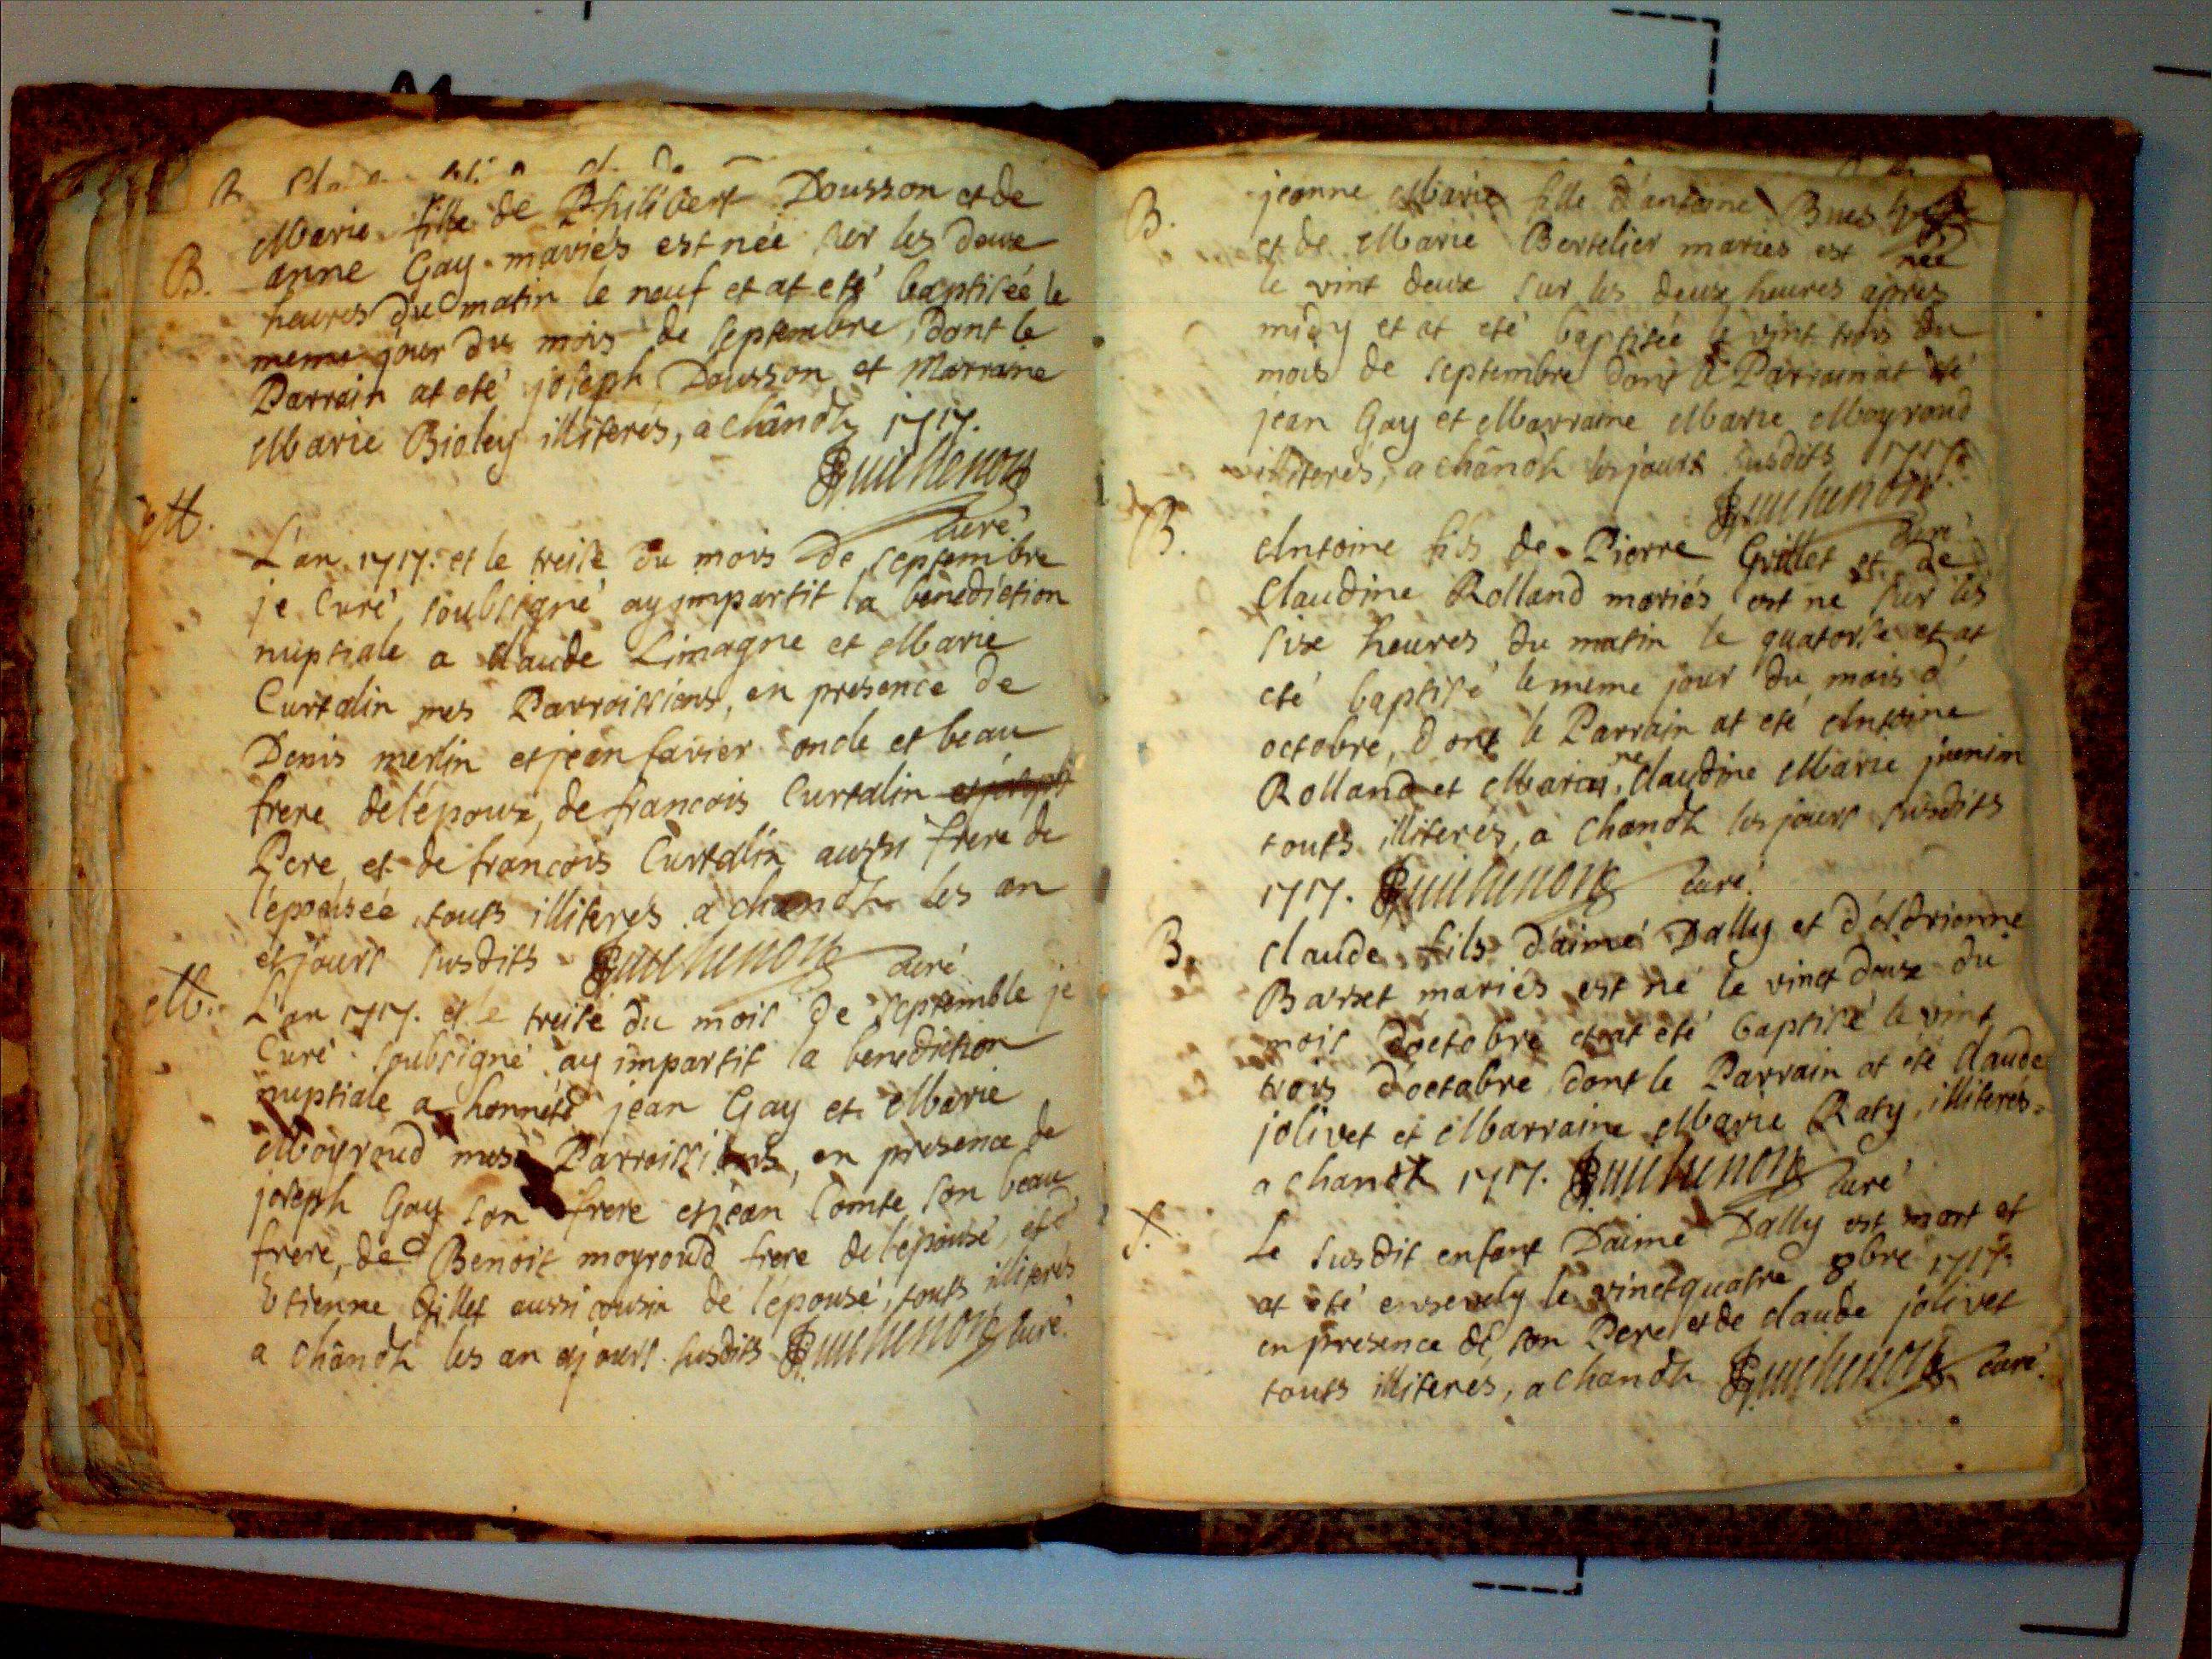 B.
Marie fille de Philibert Dousson et de
anne Gay mariés est née sur les deux
heures du matin le neuf et at eté baptisée le
meme jour du mois de septembre, dont le
Parrain at eté joseph Dousson et Marraine
Marie Bioley illiterés, a chândz 1717.
Guichenon
curé
M.
L'an 1717. et le treise du mois de septembre
je Curé soubsigné ay impartit la benediction
nuptiale a Claude Limagne et Marie
Curtalin mes Parroissiens, en presence de
Denis merlin et jean favier oncle et beau
frere de l'époux, de francois Curtalin
Pere et de francois Curtalin aussi frere de
l'épousée touts illiterés a chandz les an
et jours susdits Guichenon curé
M.
L'an 1717. et le treise du mois de septemble je
Curé soubsigné ay impartit la benediction
nuptiale a honnéte jean Gay et Marie
Moyroud mes Parroissiens, en presence de
joseph Gay son frere et jean Comte son beau
frere, de Benoit moyroud frere de l'épousé, et d'
Etienne Gillet aussi cousin de l'épousé, touts illiterés
a chândz les an ejours susdits Guichenon curé
B.
jeanne Marie fille d'antoine Bues
et de Marie Bertelier mariés est née
le vint deux sur les deux heures apres
midy et at eté baptisée le vint trois du
mois de septembre dont le Parrain at eté
jean Gay et Marraine Marie Moyroud
illiterés, a chândz les jours susdits 1717.
Guichenon
curé
B.
Antoine fils de Pierre Grillet et de
Claudine Rolland mariés est né sur les
sixe heures du matin le quatorse et at
eté baptisé le meme jour du mois d'
octobre, dont le Parrain at eté Antoine
Rolland et Claudine Marie
touts illiterés, a chandz les jours susdits
1717. Guichenon curé
B.
Claude fils d'aimé Dally et d'Adrienne
Barset mariés est né le vinct deux du
mois d'octobre et at eté baptisé le vint
trois d'octobre dont le Parrain at eté Claude
jolivet et Marraine Marie Raty, illiterés
a chandz 1717. Guichenon curé
Le susdit enfant D'aimé Dally est mort et
at eté ensevely le vinctquatre 8bre 1717.
en presence de son Pere et de claude jolivet
touts illiterés, a chandz Guichenon curé.